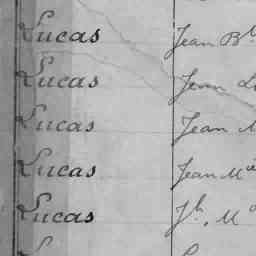 Lucas Jean Bte
Lucas Jean
Lucas Jean
Lucas Jean Mie
Lucas Jh. M